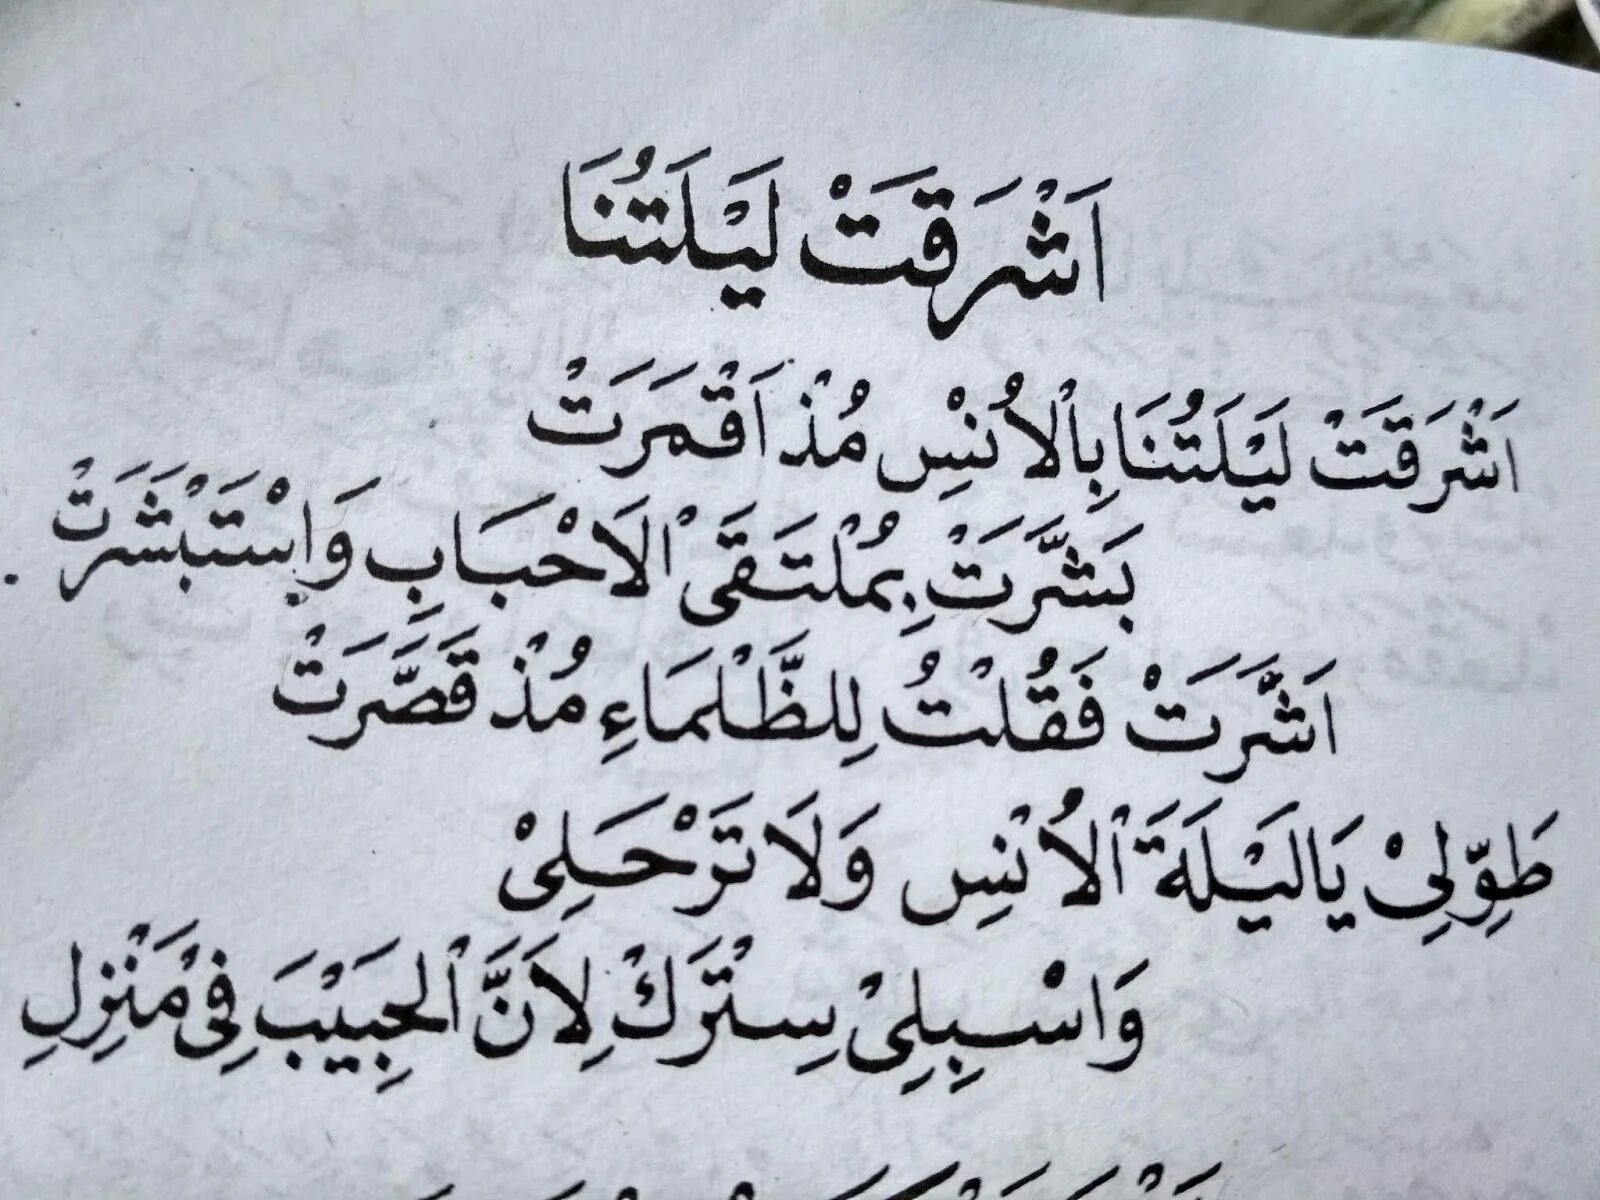 اَشْرَقَتْ لَيْلَتُنَا
اَشْرَقَتْ لَيْلَتُنَا بِاْلاُنْسِ مُذْ اَقْمَرَتْ
بَشَّرَتْ بِمُلْتَقَى اْلاَحْبَابِ وَاِسْتَبْشَرَتْ
اَشَّرَتْ فَقُلْتُ لِلظَّلْمَاءِ مُذْ قَصَّرَتْ
طَوِّلِيْ يَالَيْلَةَ اْلاُنْسِ وَلَا تَرْحَلِىْ
وَاسْبِلِىْ سِتْرَكْ لِاَنَّ اْلحَبِيْبَ فِىْ مَنْزِلِ